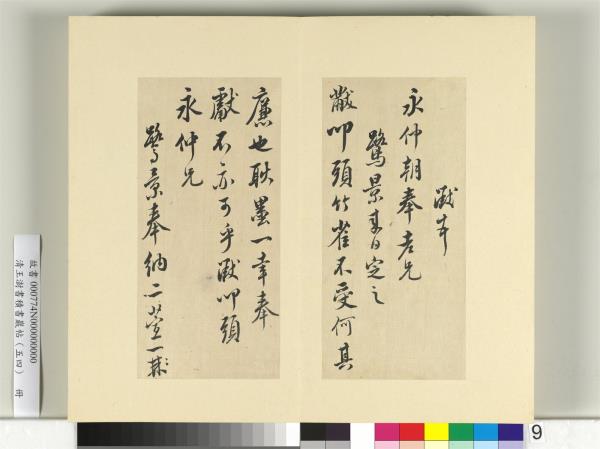 黻
永仲朝奉老兄
鷺景某日定之
黻叩頭竹雀不受何其
廉也耿墨一幸奉
獻不亦可乎黻叩頭
永仲兄
鷺景奉納二一
故書 000774N000000000
清王澍書積書巖帖（五四） 冊
9